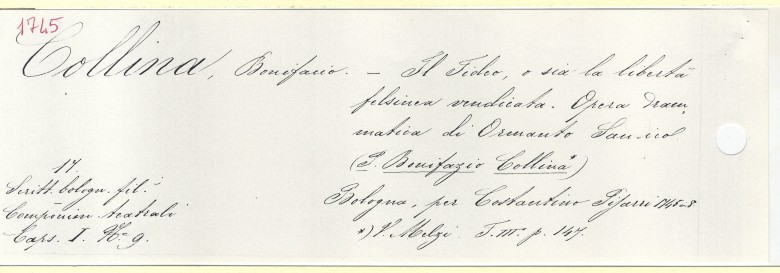 1745
Collina, Bonifacio. — Il Fideo, o sia la libertà
felsinea vendicata. Opera dram,
matica di Ormanto
(P. Bonifazio Collina*)
Bologna, per Costantino Pisarri 1745 in 8
*) V. Melzi. T. III. p. 147.
17.
Scritt. bologn. fil.
Componim. teatrali
Caps. I. N.º 9.